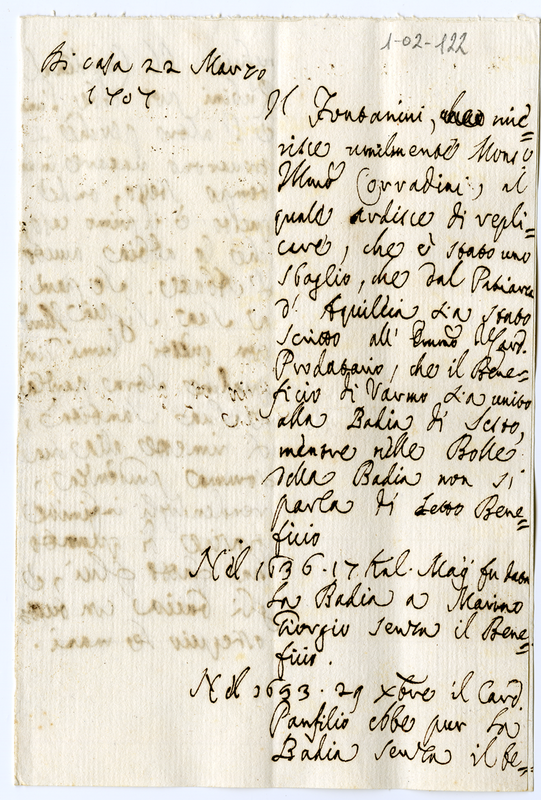 1-02-122
Di casa 22 Marzo
1707
Il Fontanini, rive=
risce umilmente Mons:
Illmo Corradini, al
quale ardisce di repli=
care, che è stato uno
sbaglio, che dal Patriarca
d' Aquileia sia stato
scritto all' Emmo Card.
Prodatario, che il Bene=
ficio di Varmo sia unito
alla Badia di Sesto,
mentre nelle Bolle
della Badia non si
parla di detto Bene=
ficio
Nel 1636. 17. Kal. Maij fu data
la Badia a Marino
Giorgio senza il Bene=
ficio.
Nel 1693. 29 Xbre il Card.
Panfilio ebbe pur la
Badia senza il be=